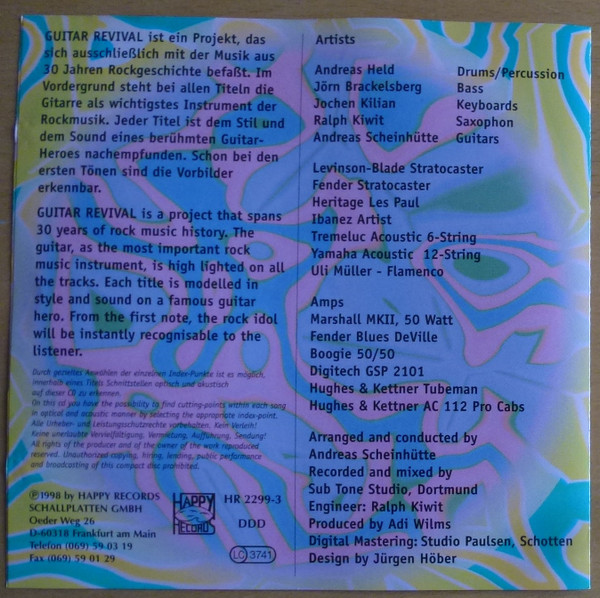 GUITAR REVIVAL ist ein Projekt, das
sich ausschließlich mit der Musik aus
30 Jahren Rockgeschichte befaßt. Im
Vordergrund steht bei allen Titeln die
Gitarre als wichtigstes Instrument der
Rockmusik. Jeder Titel ist dem Stil und
dem Sound eines berühmten Guitar-
Heroes nachempfunden. Schon bei den
ersten Tönen sind die Vorbilder
erkennbar.
GUITAR REVIVAL is a project that spans
30 years of rock music history. The
guitar, as the most important rock
music instrument, is high lighted on all
the tracks. Each title is modelled in
style and sound on a famous guitar
hero. From the first note, the rock idol
will be instantly recognisable to the
listener.
Durch gezieltes Anwählen der einzelnen Index-Punkte ist es möglich,
innerhalb eines Titels Schnittstellen optisch und akustisch
auf dieser CD zu erkennen.
On this cd you have the possibility to find cutting-points within each song
in optical and acoustic manner by selecting the appropriate index-point.
Alle Urheber- und Leistungsschutzrechte vorbehalten. Kein Verleih!
Keine unerlaubte Vervielfältigung, Vermietung, Aufführung, Sendung!
All rights of the producer and of the owner of the work reproduced
reserved. Unauthorized copying, hiring, lending, public performance
and broadcasting of this compact disc prohibited.
℗1998 by HAPPY RECORDS
SCHALLPLATTEN GMBH
Oeder Weg 26
D-60318 Frankfurt am Main
Telefon (069) 59 03 19
Fax (069) 59 01 29
HAPPY
RECORD
HR 2299-3
DDD
LC 3741
Artists
Andreas Held Drums/Percussion
Jörn Brackelsberg Bass
Jochen Kilian Keyboards
Ralph Kiwit Saxophon
Andreas Scheinhütte Guitars
Levinson-Blade Stratocaster
Fender Stratocaster
Heritage Les Paul
Ibanez Artist
Tremeluc Acoustic 6-String
Yamaha Acoustic 12-String
Uli Müller - Flamenco
Amps
Marshall MKII, 50 Watt
Fender Blues DeVille
Boogie 50/50
Digitech GSP 2101
Hughes & Kettner Tubeman
Hughes & Kettner AC 112 Pro Cabs
Arranged and conducted by
Andreas Scheinhütte
Recorded and mixed by
Sub Tone Studio, Dortmund
Engineer: Ralph Kiwit
Produced by Adi Wilms
Digital Mastering: Studio Paulsen, Schotten
Design by Jürgen Höber